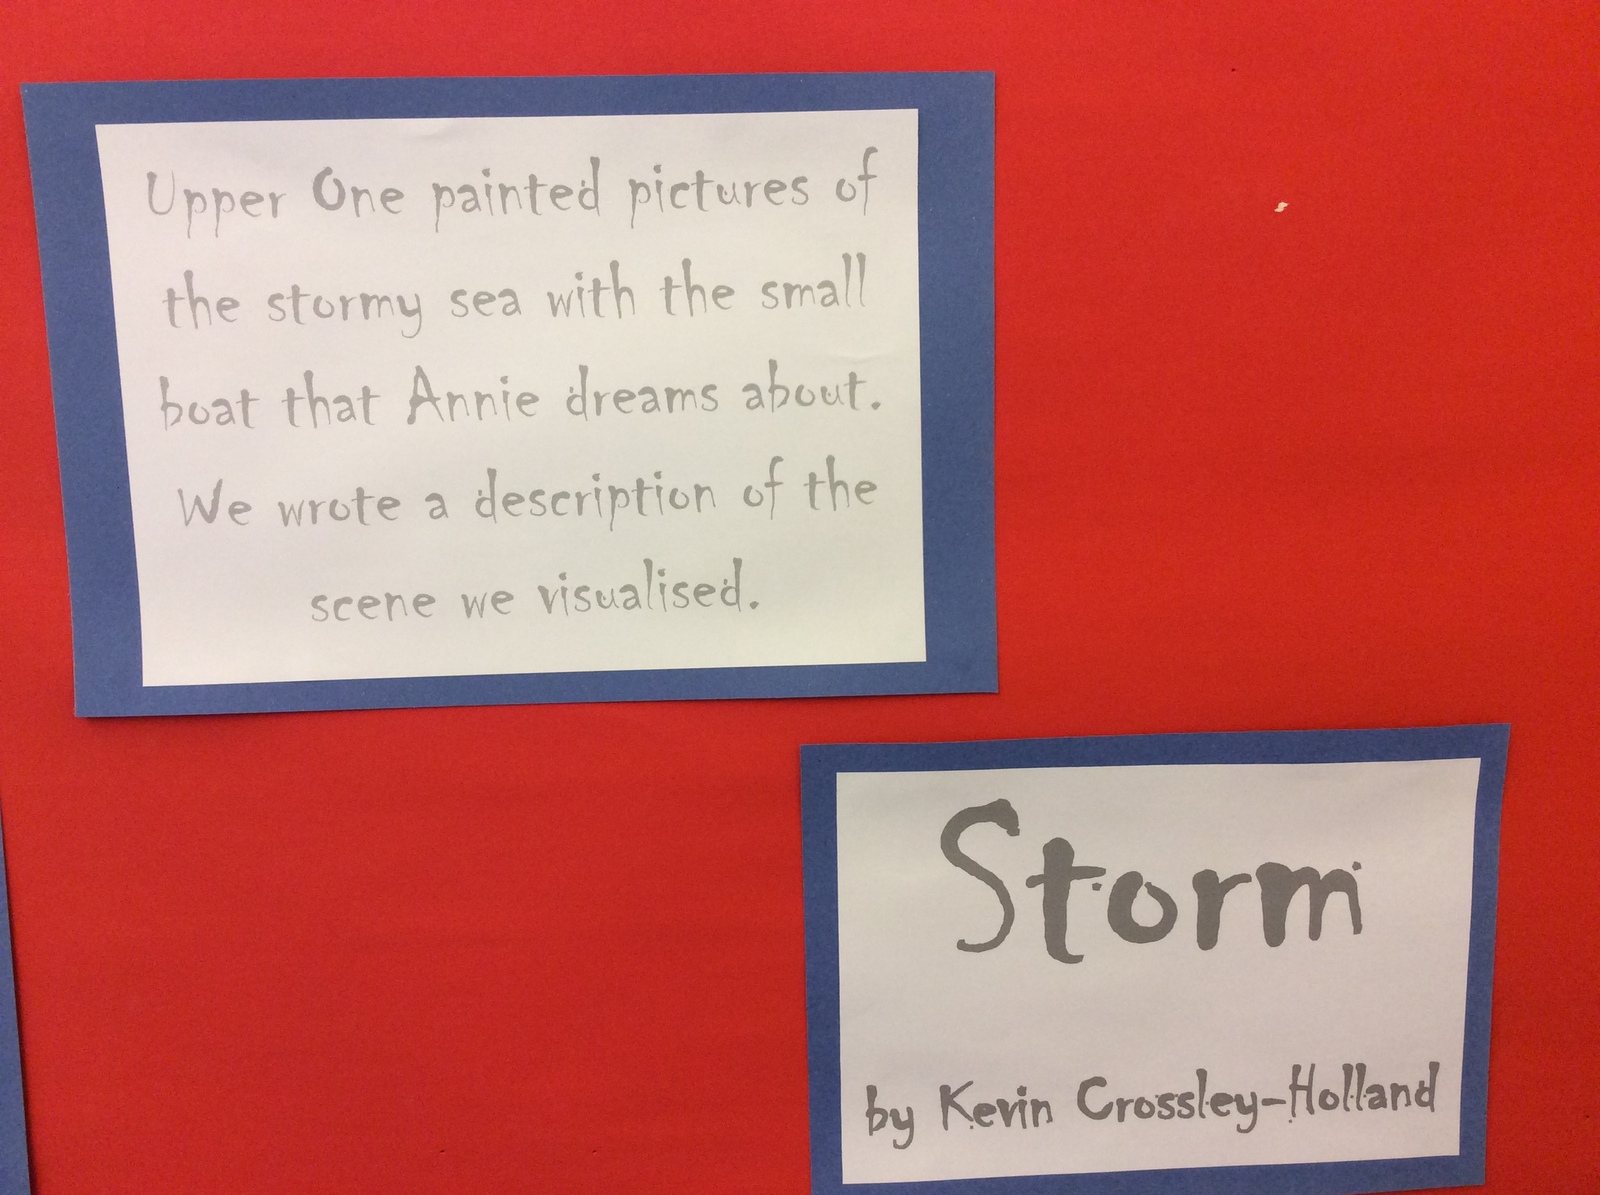 Upper One painted pictures of
the stormy sea with the small
boat that Annie dreams about.
We wrote a description of the
scene we visualised.
Storm
by Kevin Crossley-Holland